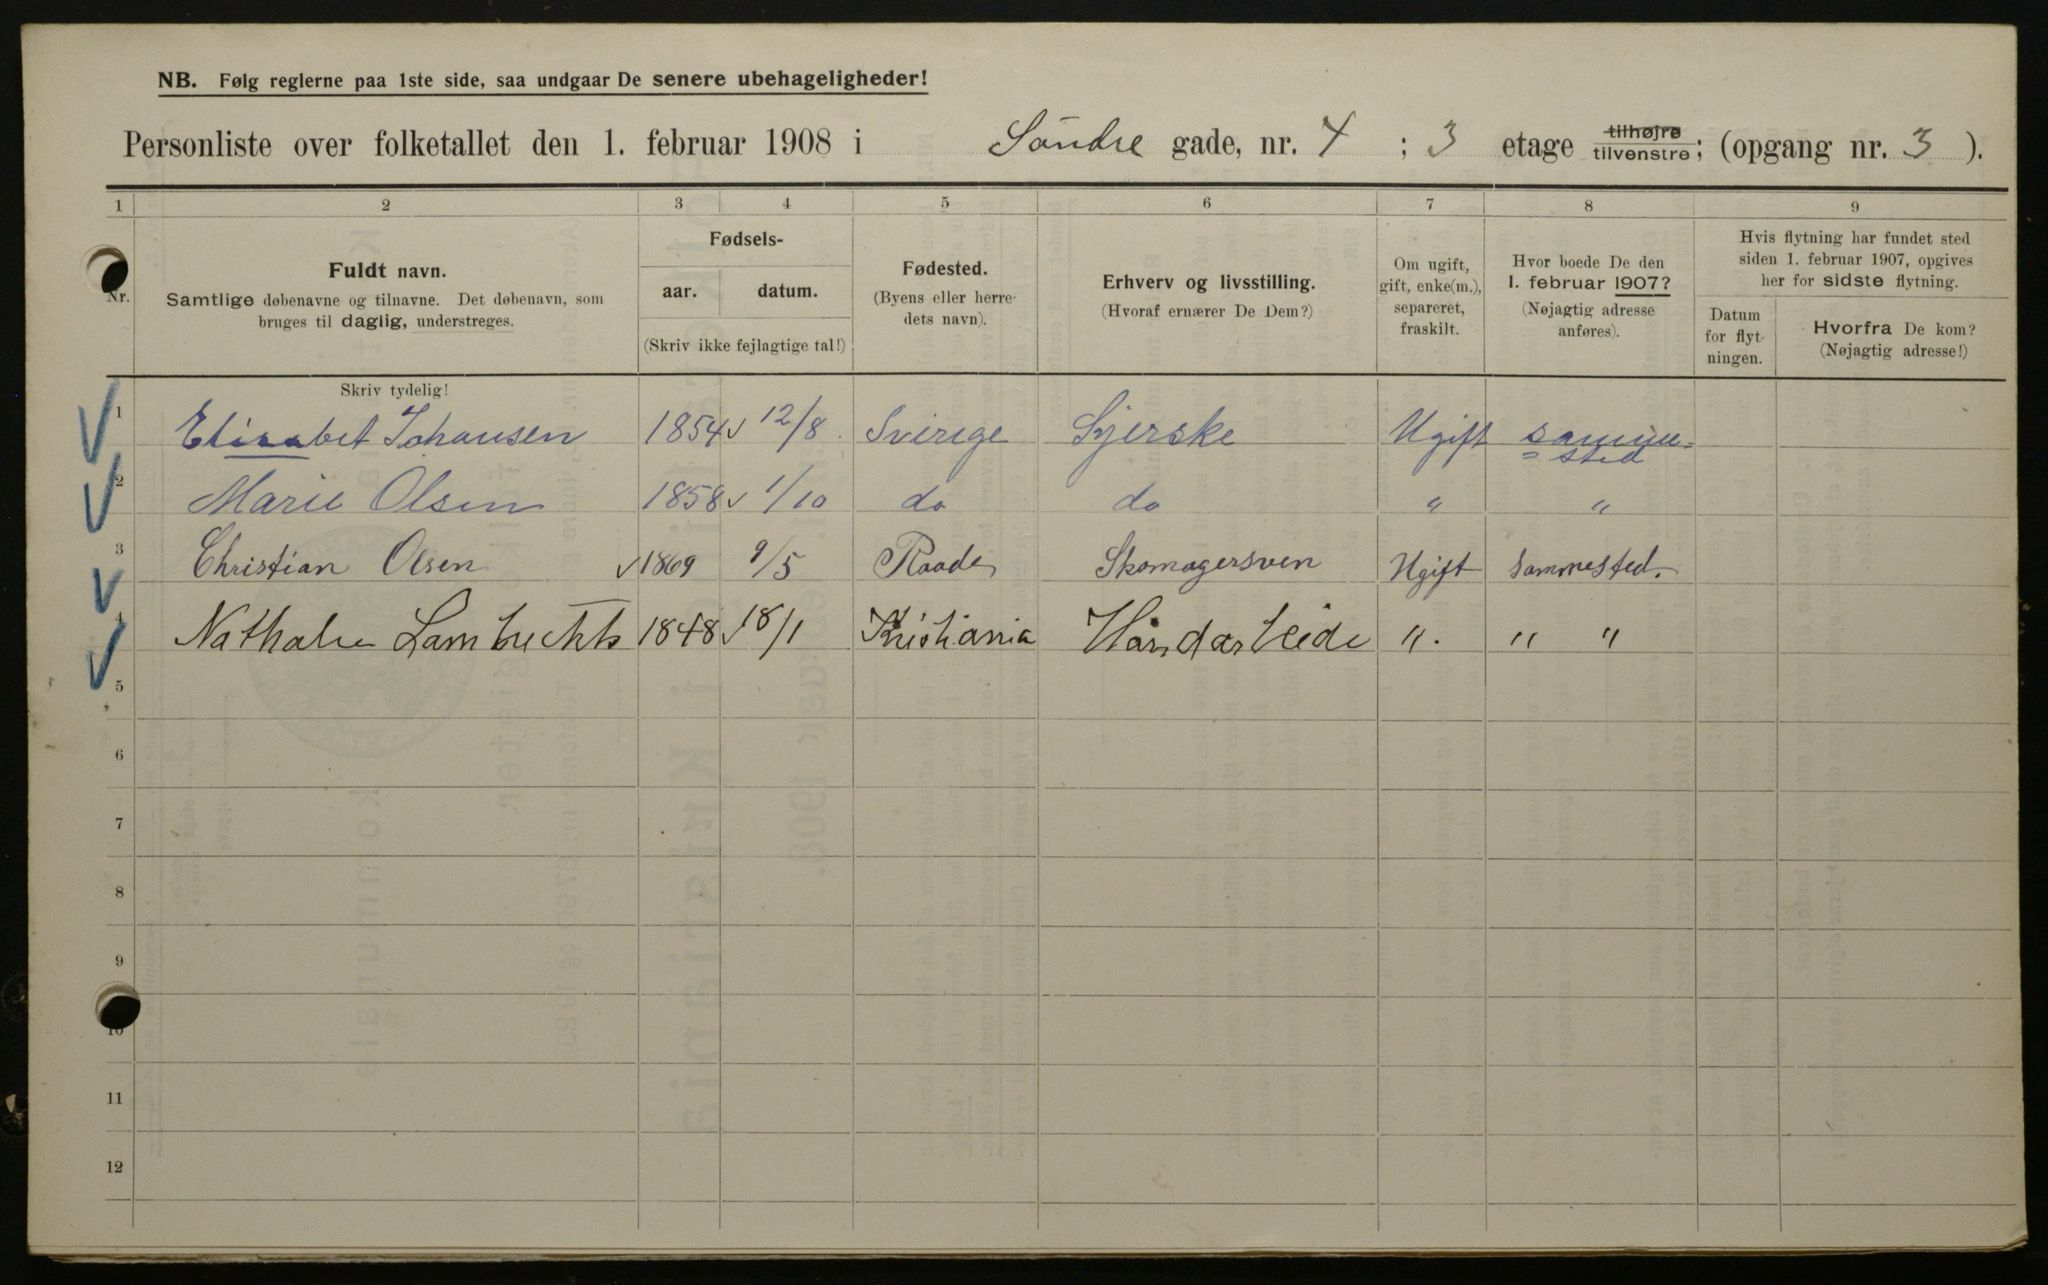 NB. Følg reglerne paa 1ste side, saa undgaar De senere ubehageligheder!
Personliste over folketallet den 1. februar 1908 i Söndre gade, nr. 4 ; 3 etage tilhøjre tilvenstre; (opgang nr. 3 ).
1 2 3 4 5 6 7 8 9
Nr.
Fuldt navn.
Samtlige døbenavne og tilnavne. Det døbenavn, som
bruges til daglig, understreges.
Fødsels-
aar. datum.
(Skriv ikke fejlagtige tal!)
Fødested.
(Byens eller herre-
dets navn).
Erhverv og livsstilling.
(Hvoraf ernærer De Dem?)
Om ugift,
gift, enke(m.),
separeret,
fraskilt.
Hvor boede De den
1. februar 1907?
(Nøjagtig adresse
anføres).
Hvis flytning har fundet sted
siden 1. februar 1907, opgives
her for sidste flytning.
Datum
for flyt-
ningen.
Hvorfra De kom?
(Nøjagtig adresse!)
Skriv tydelig!
1 Elisabet Johansen 1854 12/8 Sverige Syerske Ugift samme=
sted
2 Marie Olsen 1858 1/10 do do " "
3 Christian Olsen 1869 9/5 Raade Skomagersven Ugift Sammested.
4 Nathalie Lambrechts 1848 18/1 Kristiania Haandarbeide ". " "
5
6
7
8
9
10
11
12